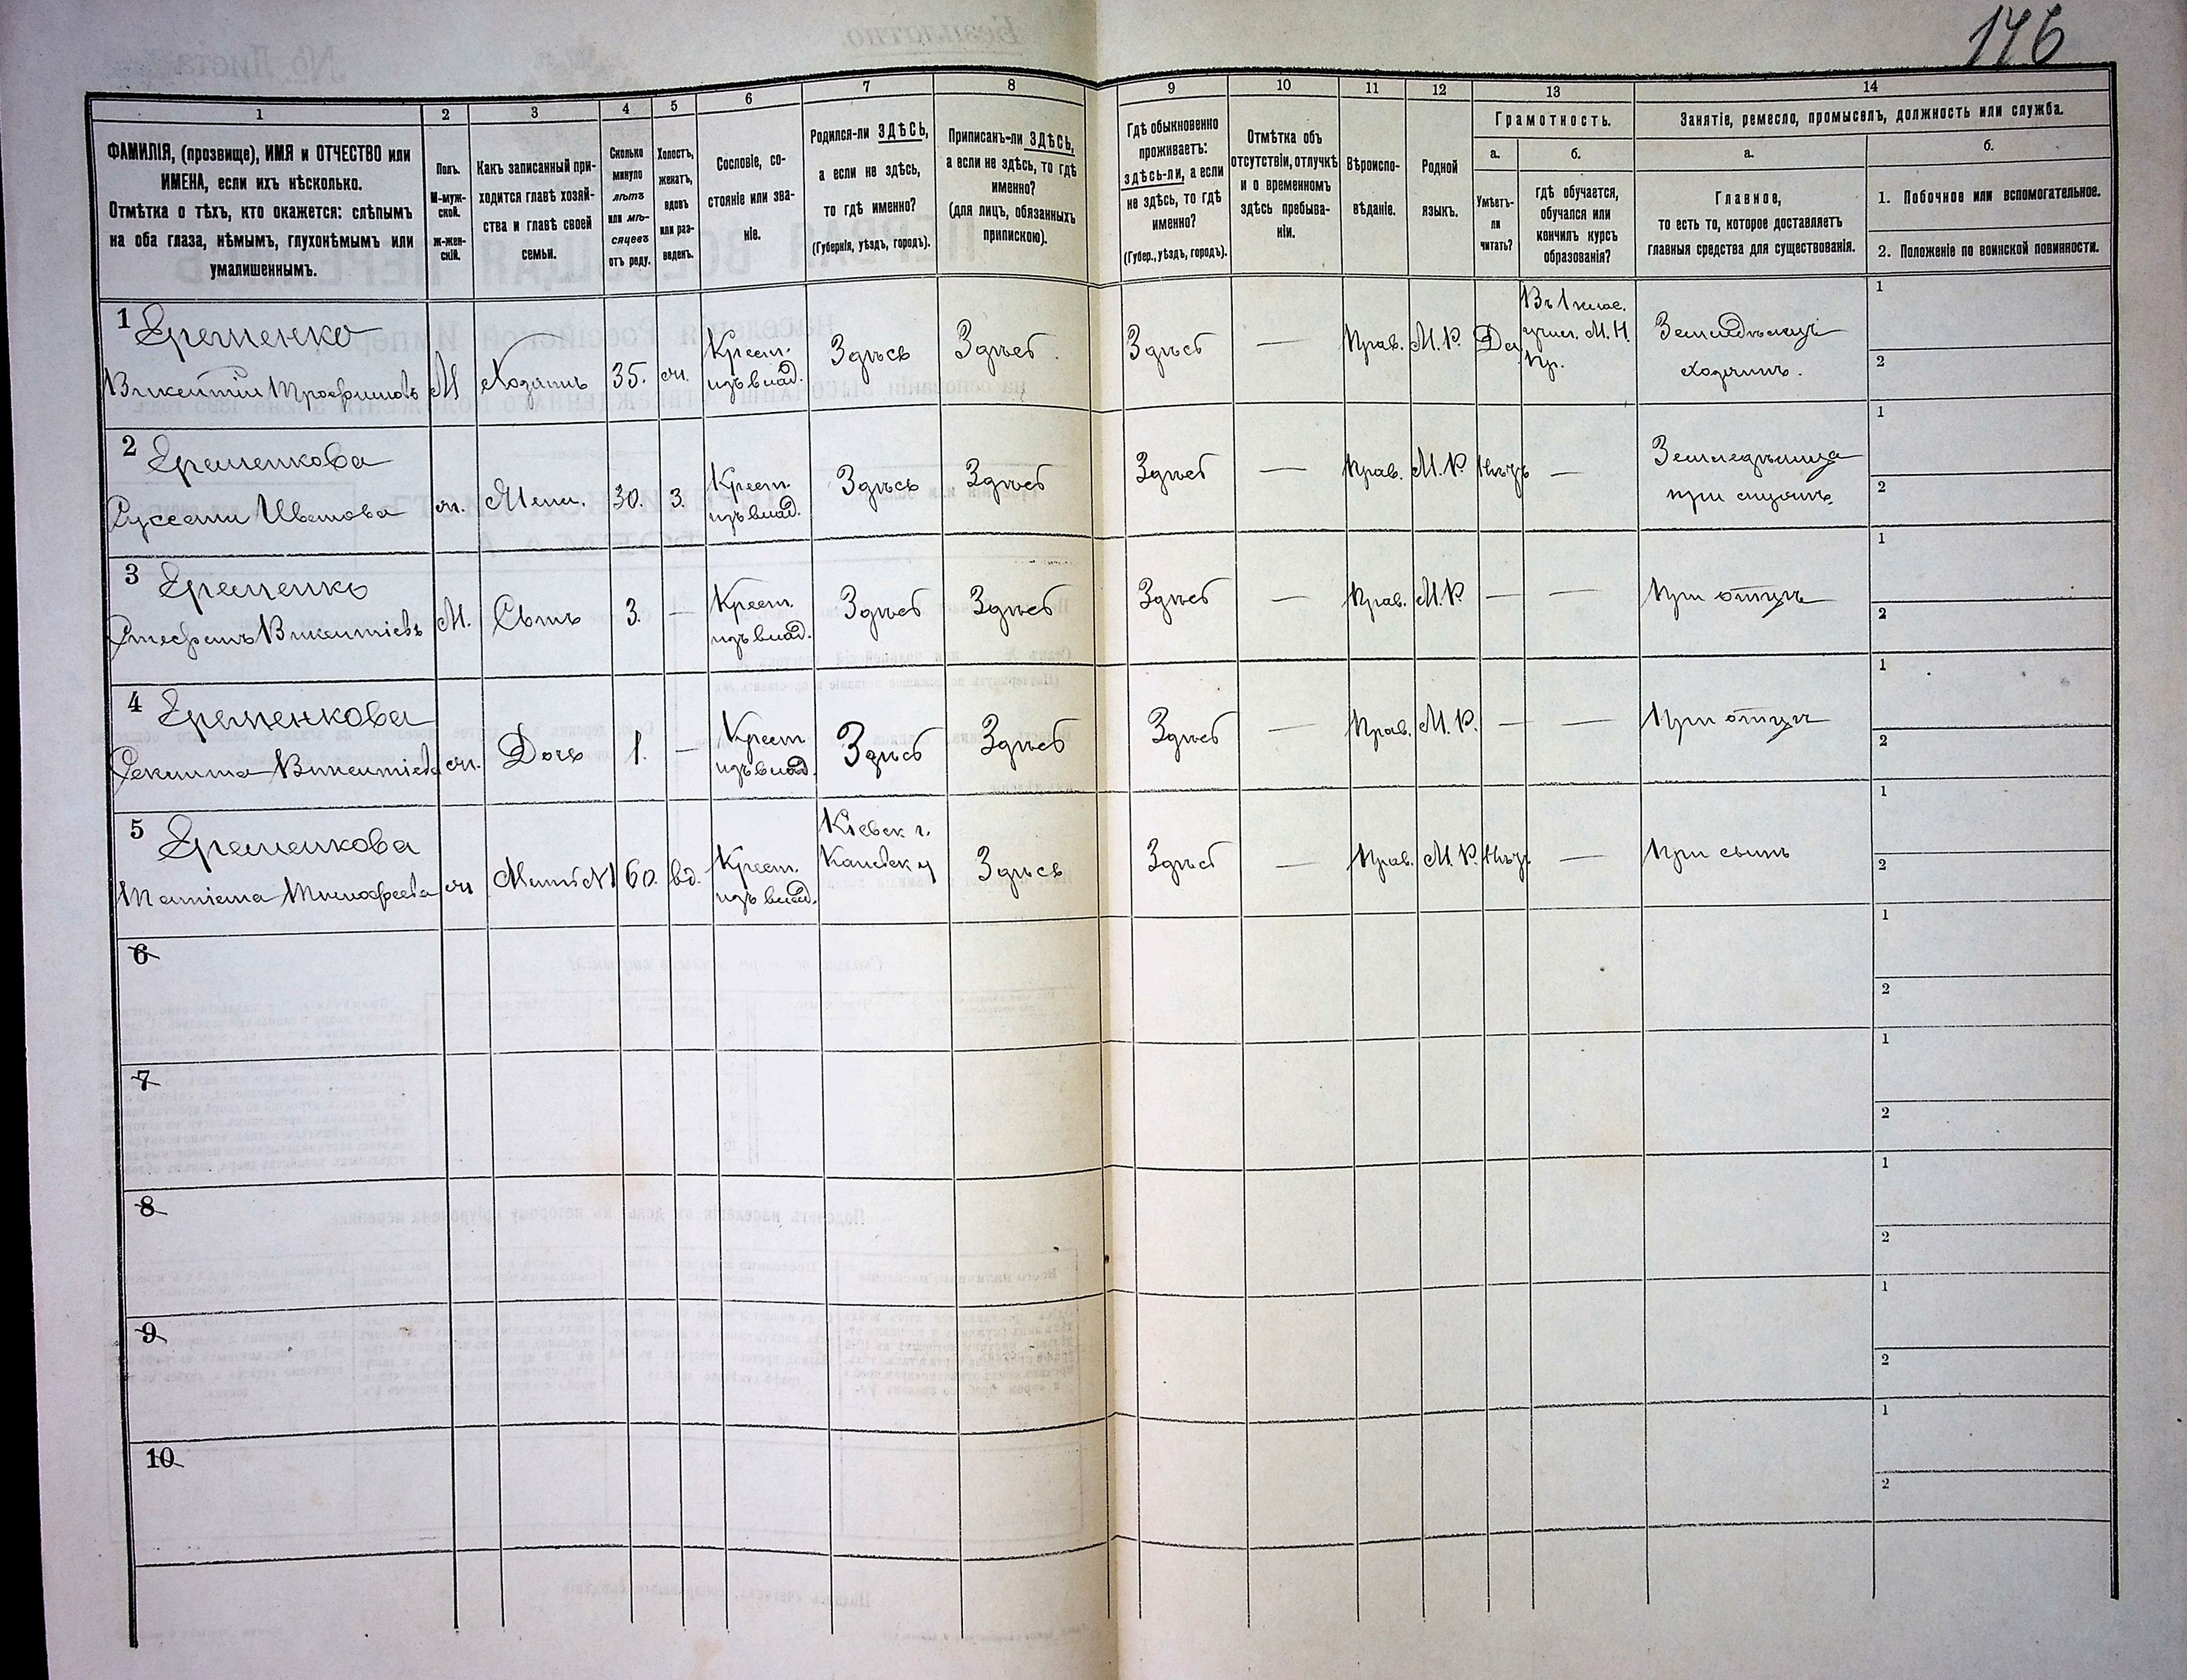 146
1
ФАМИЛІЯ, (прозвище), ИМЯ и ОТЧЕСТВО или
ИМЕНА, если ихъ нѣсколько.
Отмѣтка о тѣхъ, кто окажется: слѣпымъ
на оба глаза, нѣмымъ, глухонѣмымъ или
умалишеннымъ.
2
Полъ.
М-муж-
ской.
Ж-жен-
скій.
3
Какъ записанный при-
ходится главѣ хозяй-
ства и главѣ своей
семьи.
4
Сколько
минуло
лѣтъ
или мѣ-
сяцевъ
отъ роду.
5
Холостъ,
женатъ,
вдовъ
или раз-
веденъ.
6
Сословіе, со-
стояніе или зва-
ніе.
7
Родился-ли ЗДѢСЬ,
а если не здѣсь,
то гдѣ именно?
(Губернія, уѣздъ, городъ).
8
Приписанъ-ли ЗДѢСЬ,
а если не здѣсь, то гдѣ
именно?
(для лицъ, обязанныхъ
припискою).
9
Гдѣ обыкновенно
проживаетъ:
здѣсь-ли, а если
не здѣсь, то гдѣ
именно?
(Губер., уѣздъ, городъ).
10
Отмѣтка объ
отсутствіи, отлучкѣ
и о временномъ
здѣсь пребыва-
ніи.
11
Вѣроиспо-
вѣданіе.
12
Родной
языкъ.
13
Грамотность.
а.
Умѣетъ-
ли
читать?
б.
гдѣ обучается,
обучался или
кончилъ курсъ
образованія?
14
Занятіе, ремесло, промыселъ, должность или служба.
а.
Главное,
то есть то, которое доставляетъ
главныя средства для существованія.
б.
1. Побочное или вспомогательное.
2. Положеніе по воинской повинности.
1 Еременко
Викентій Трофимовъ
М
Хозяинъ
35.
ж.
Крест.
изъ влад.
Здѣсь
Здѣсь.
Здѣсь
—
Прав.
М. Р.
Да
Въ 1 клас.
учил. М. Н.
Пр.
Земледѣлецъ
хозяинъ.
1
2
2 Еременкова
Иванова
ж.
Жена.
30.
З.
Крест.
изъ влад.
Здѣсь
Здѣсь
Здѣсь
—
Прав.
М. Р.
Нѣтъ
—
Земледѣлица
при мужѣ
1
2
3 Еременко
Стефанъ Викентіевъ
М.
Сынъ
3.
—
Крест.
изъ влад.
Здѣсь
Здѣсь
Здѣсь
—
Прав.
М. Р.
—
—
При отцѣ
1
2
4 Еременкова
Викентіева
ж.
Дочь
1.
—
Крест
изъ влад.
Здѣсь
Здѣсь
Здѣсь
—
Прав.
М. Р.
—
—
При отцѣ
1
2
5 Еременкова
Татіана Тимофеева
ж
Мать №1
60.
вд.
Крест.
изъ влад.
Кіевск г.
Каневск у
Здѣсь
Здѣсь
—
Прав.
М. Р.
Нѣтъ
—
При сынѣ
1
2
6
1
2
7
1
2
8
1
2
9
1
2
10
1
2